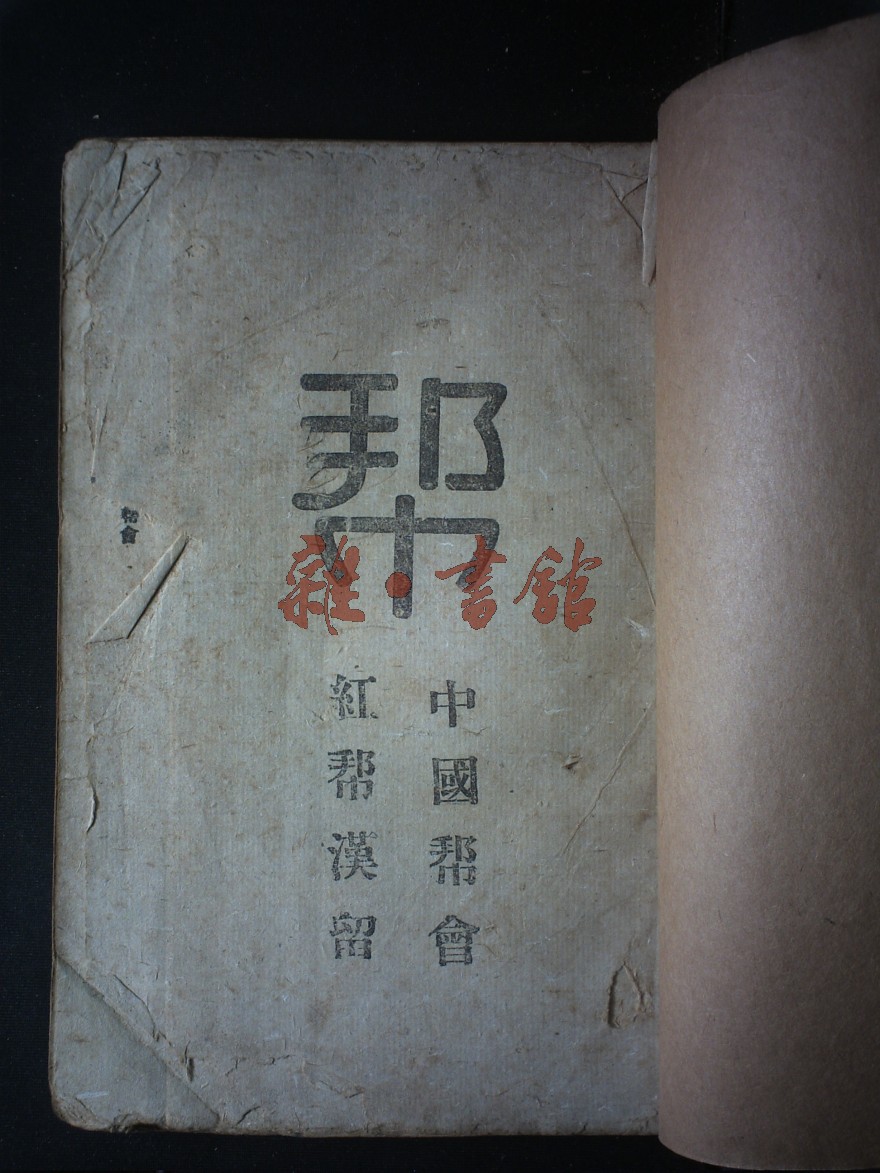 帮
雜·書館
中國帮會
紅帮漢留